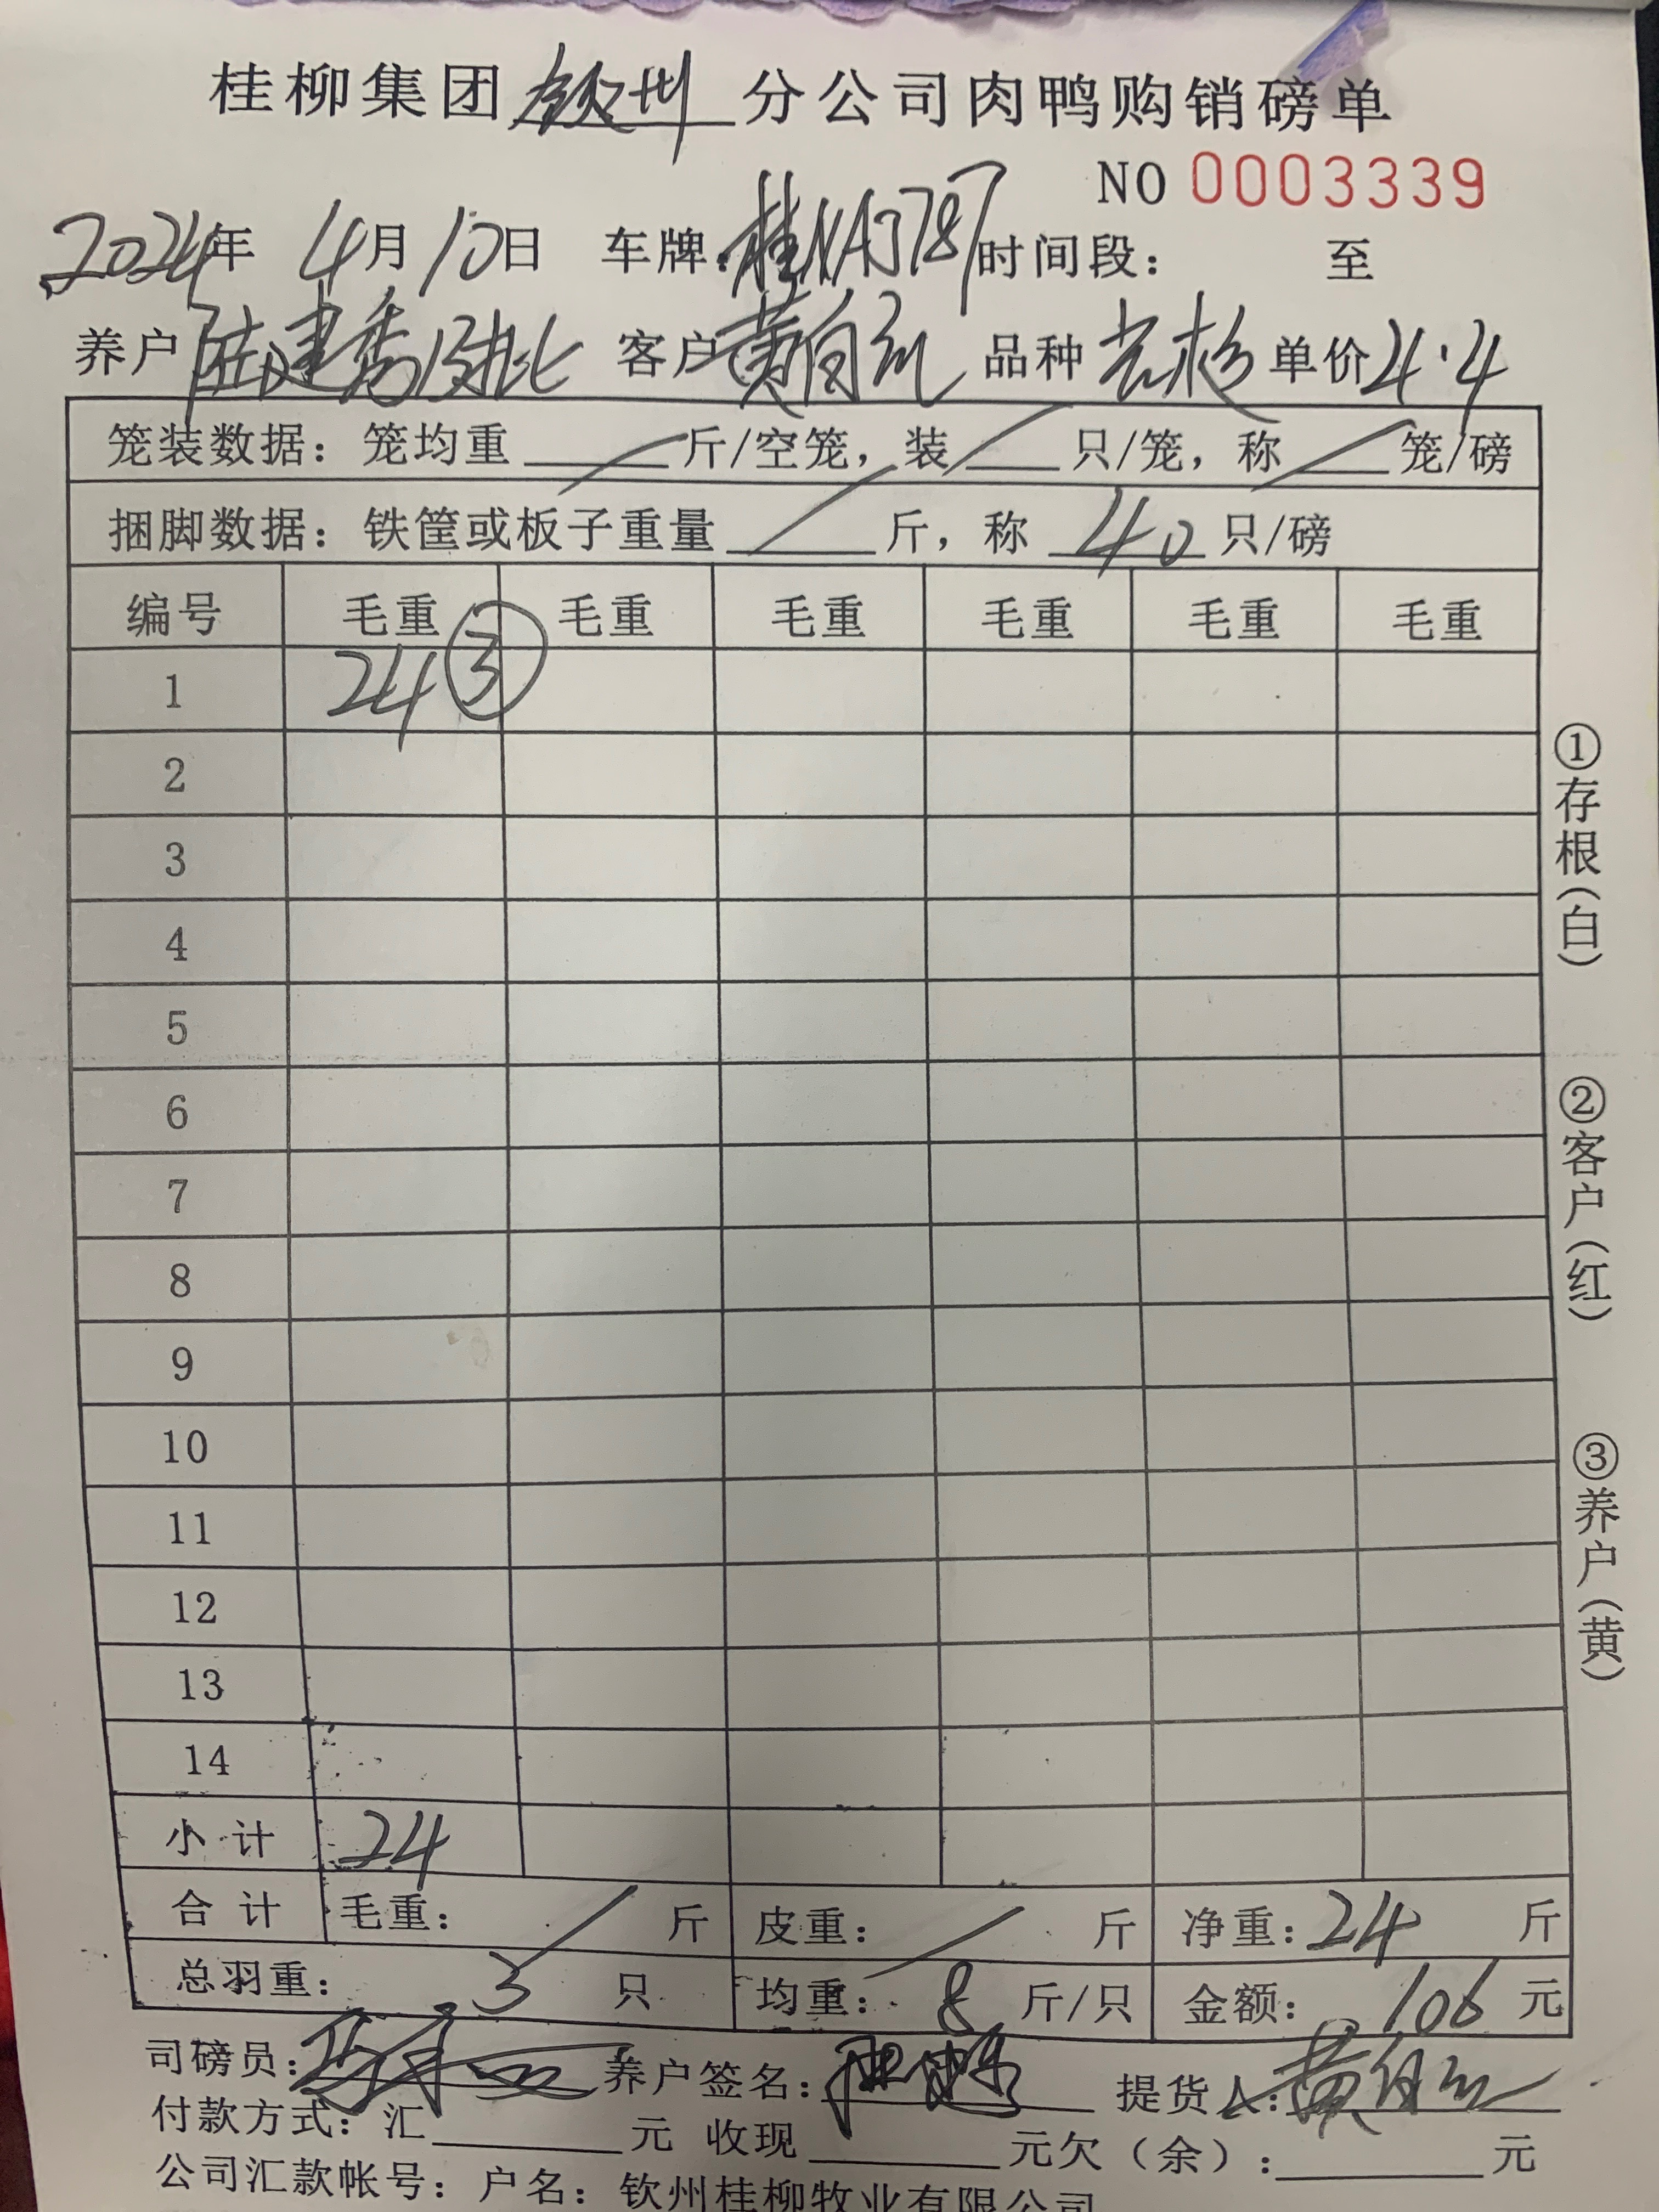 桂柳集团钦州分公司肉鸭购销磅单
NO 0003339
2024年 4月10日 车牌:桂NA3787 时间段: 至
养户 陆建秀 客户 黄自 品种 单价4.4
笼装数据: 笼均重 / 斤/空笼, 装 / 只/笼, 称 / 笼/磅
捆脚数据: 铁筐或板子重量 / 斤, 称 40 只/磅
编号 毛重 毛重 毛重 毛重 毛重 毛重
1 24 ③
2
3
4
5
6
7
8
9
10
11
12
13
14
小计 24
合计 毛重: / 斤 皮重: / 斤 净重: 24 斤
总羽重: 3 只 均重: 8 斤/只 金额: 106 元
司磅员: 养户签名: 提货人: 黄自
付款方式: 汇 元 收现 元欠(余): 元
公司汇款帐号: 户名: 钦州桂柳牧业有限公司
①存根(白)
②客户(红)
③养户(黄)